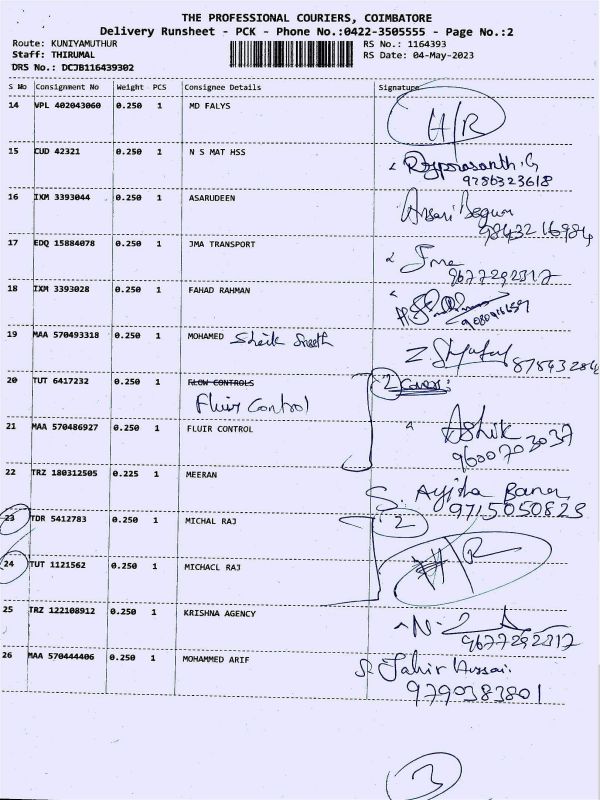 THE PROFESSIONAL COURIERS, COIMBATORE
Delivery Runsheet - PCK - Phone No.:0422-3505555 - Page No.:2
Route: KUNIYAMUTHUR RS No.: 1164393
Staff: THIRUMAL RS Date: 04-May-2023
DRS No.: DCJB116439302
S No Consignment No Weight PCS Consignee Details Signature
14 VPL 402043060 0.250 1 MD FALYS
H/R
15 CUD 42321 0.250 1 N S MAT HSS
9786323618
16 IXM 3393044 0.250 1 ASARUDEEN Ansari Begum
9843216984
17 EDQ 15884078 0.250 1 JMA TRANSPORT Jma
9677292317
18 IXM 3393028 0.250 1 FAHAD RAHMAN
19 MAA 570493318 0.250 1 MOHAMED Sheik
20 TUT 6417232 0.250 1 FLOW CONTROLS 2 Cover:
Fluir Control
21 MAA 570486927 0.250 1 FLUIR CONTROL Ashik
9600703037
22 TRZ 180312505 0.225 1 MEERAN S. Ayisha Banu
9715050823
23 TDR 5412783 0.250 1 MICHAL RAJ 2
24 TUT 1121562 0.250 1 MICHACL RAJ H/R
25 TRZ 122108912 0.250 1 KRISHNA AGENCY
9677292317
26 MAA 570444406 0.250 1 MOHAMMED ARIF Jahir Hussai
9790383801
3